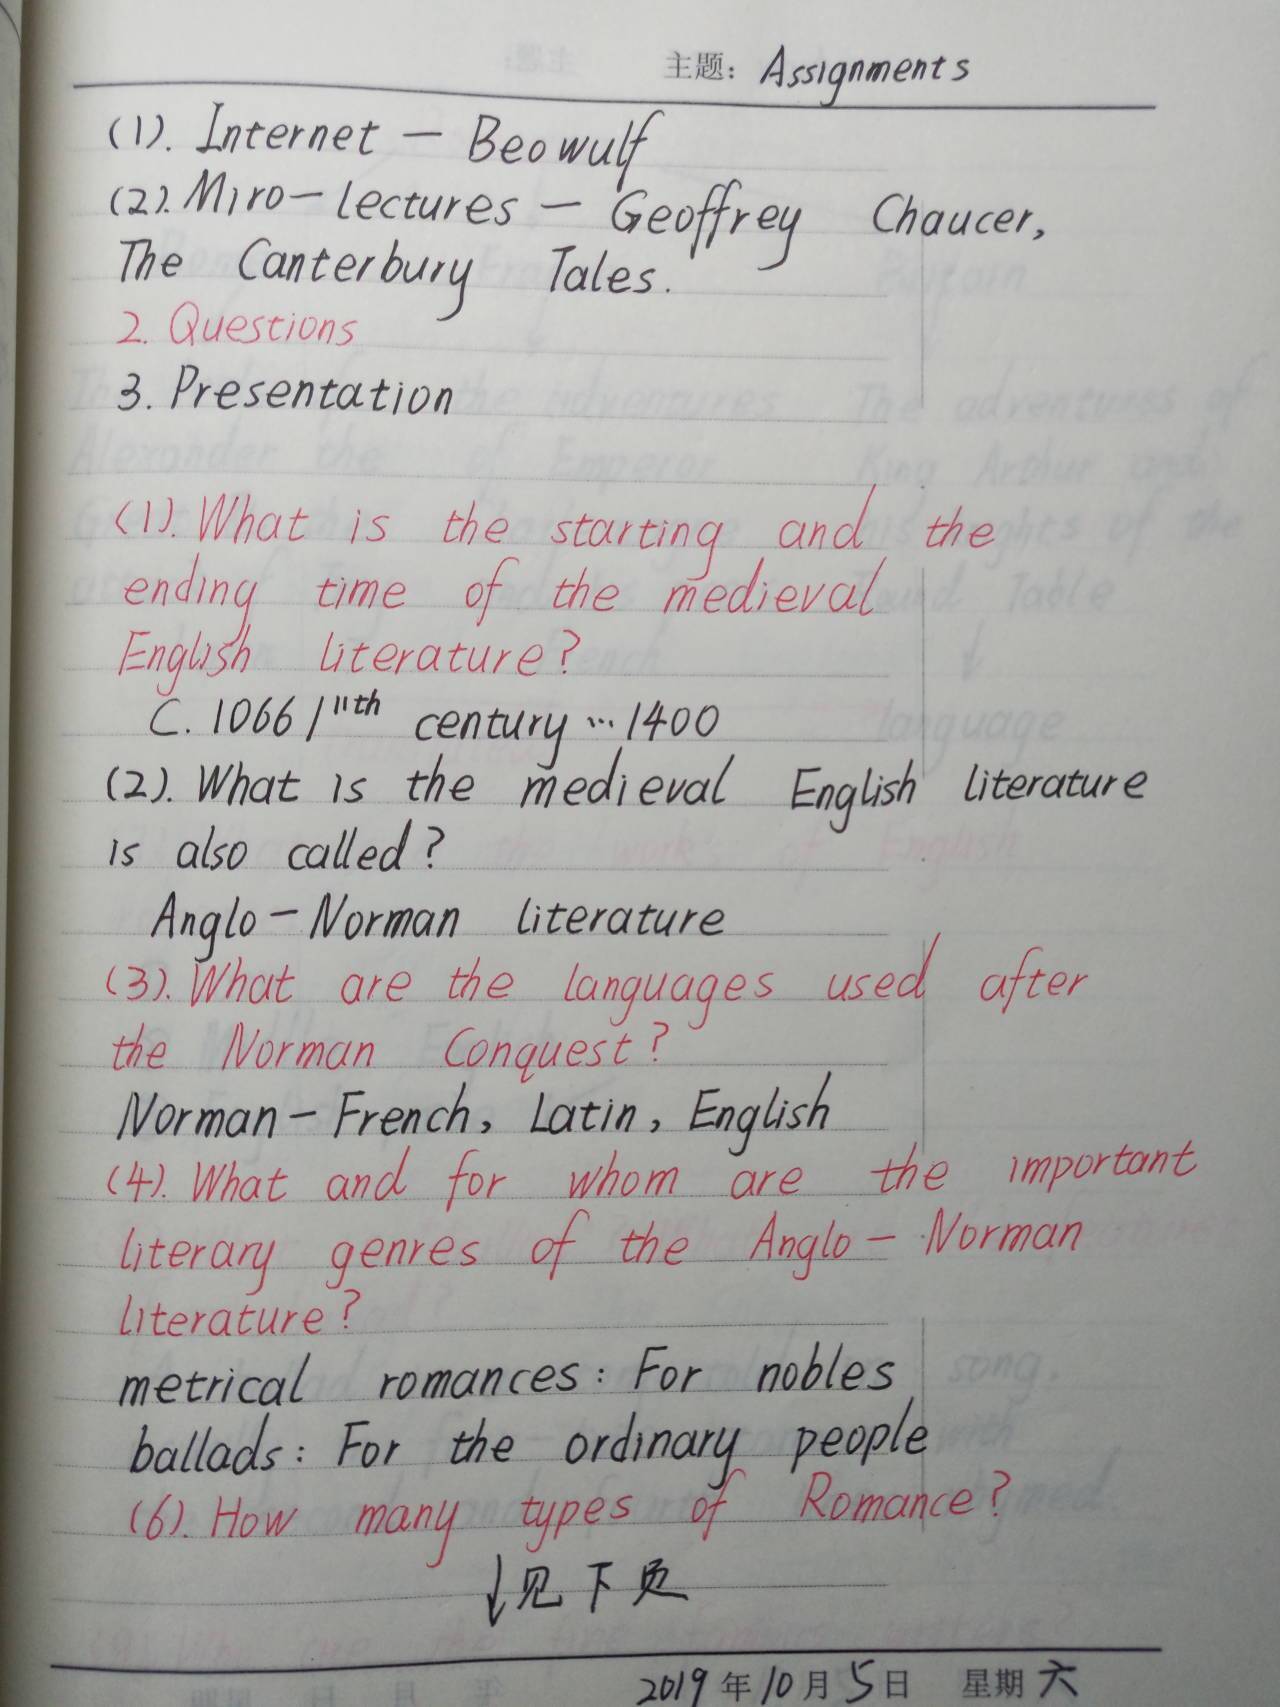 主题: Assignments
(1). Internet — Beowulf
(2). Miro-lectures — Geoffrey Chaucer,
The Canterbury Tales.
2. Questions
3. Presentation
(1). What is the starting and the
ending time of the medieval
English literature?
C. 1066 / 11th century … 1400
(2). What is the medieval English literature
is also called?
Anglo-Norman literature
(3). What are the languages used after
the Norman Conquest?
Norman-French, Latin, English
(4). What and for whom are the important
literary genres of the Anglo-Norman
literature?
metrical romances: For nobles
ballads: For the ordinary people
(6). How many types of Romance?
↓见下页
2019年10月5日 星期六